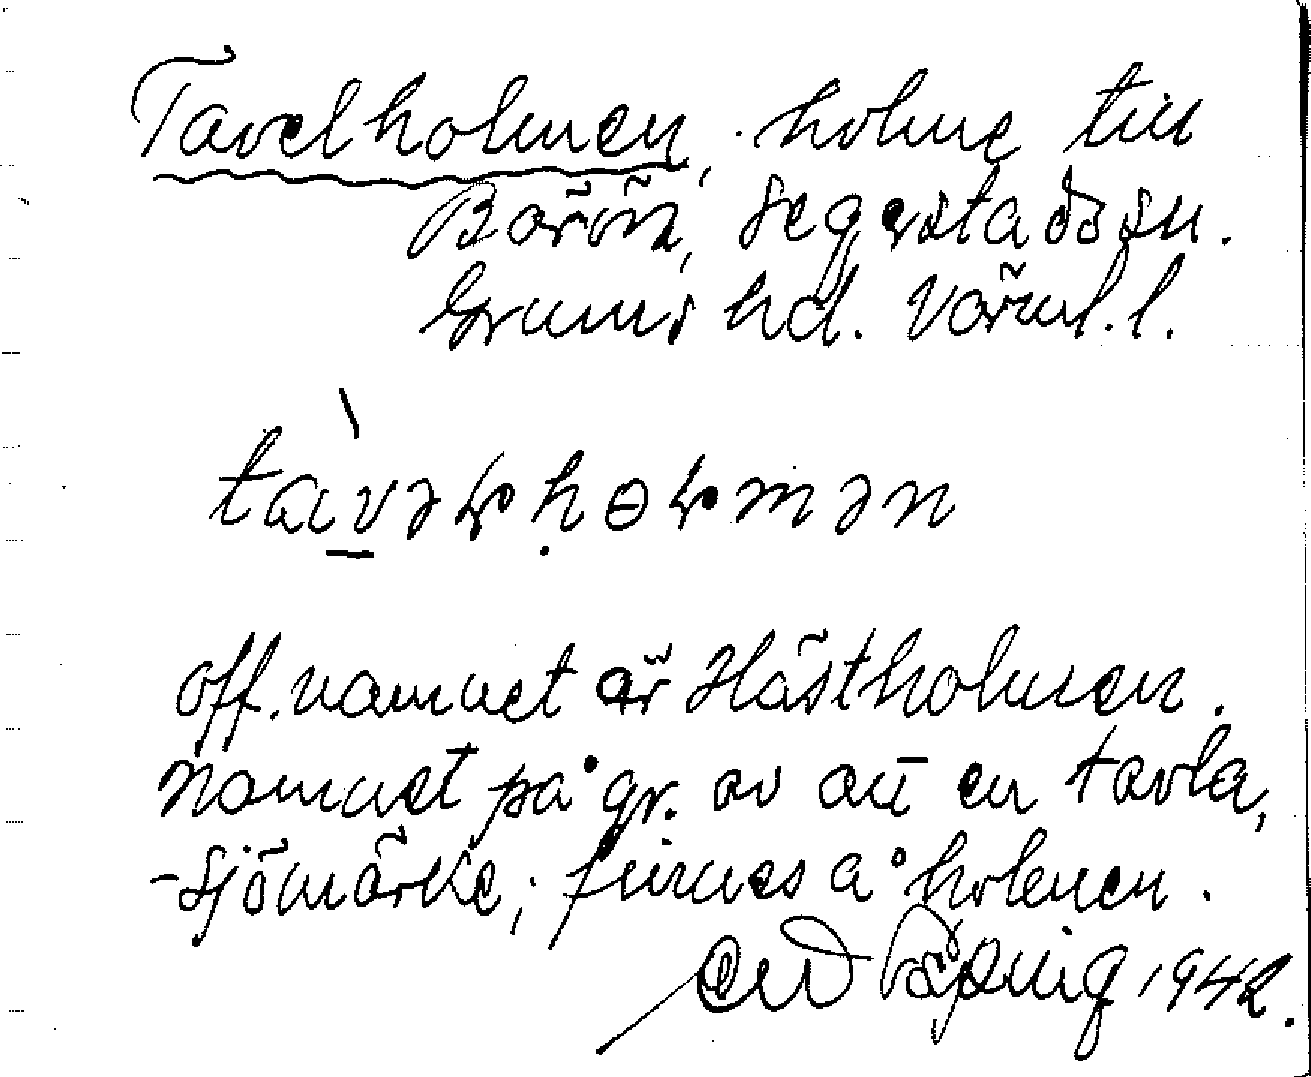 Tavelholmen, holme till
Bärön, Segerstads sn.
Grums hd. Värml. l.
off. namnet är Hästholmen.
Namnet på gr. av att en tavla,
-sjömärke, finnes å holmen.
1942.